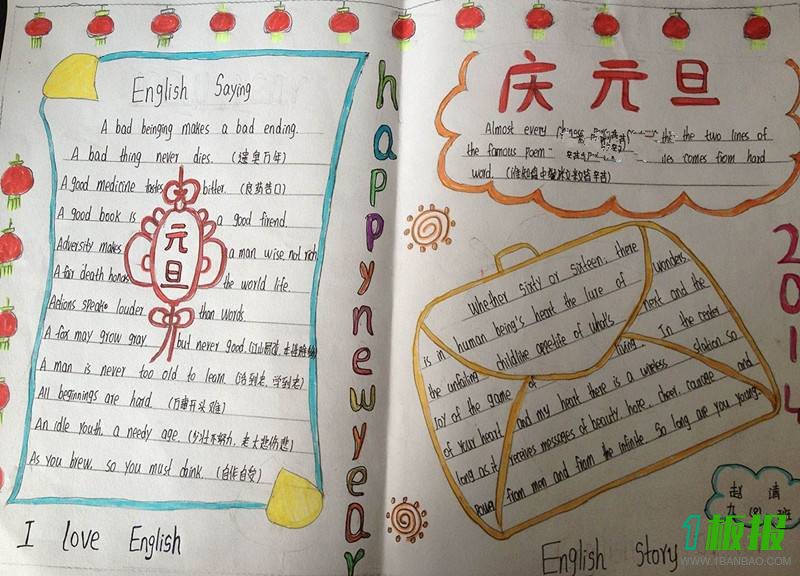 English Saying
A bad beinging makes a bad ending.
A bad thing never dies. (遗臭万年)
A good medicine tastes bitter. (良药苦口)
A good book is a good firend.
Adversity makes a man wise not rich
A far death honors the world life.
Actions speak louder than words
A fox may grow gray but never good.
A man is never too old to learn. (活到老, 学到老)
All beginnings are hard. (万事开头难)
An idle youth, a needy age. (少壮不努力, 老大徒伤悲)
As you brew, so you must drink. (自作自受)
元旦
I love English
happy new year
庆元旦
Almost every the two lines of
the famous poem comes from hard
word.
2014
Whether sixty or sixteen, there
is in human being's heart the lure of wonders.
the unfailing childlike appetite of what's next and the
joy of the game of living. In the center
of your heart and my heart there is a wireless station so
long as it receives messages of beauty, hope, cheer, courage and
power from men and from the infinite. So long are you young.
English Story
赵清
九(8)班
1板报
WWW.1BANBAO.COM